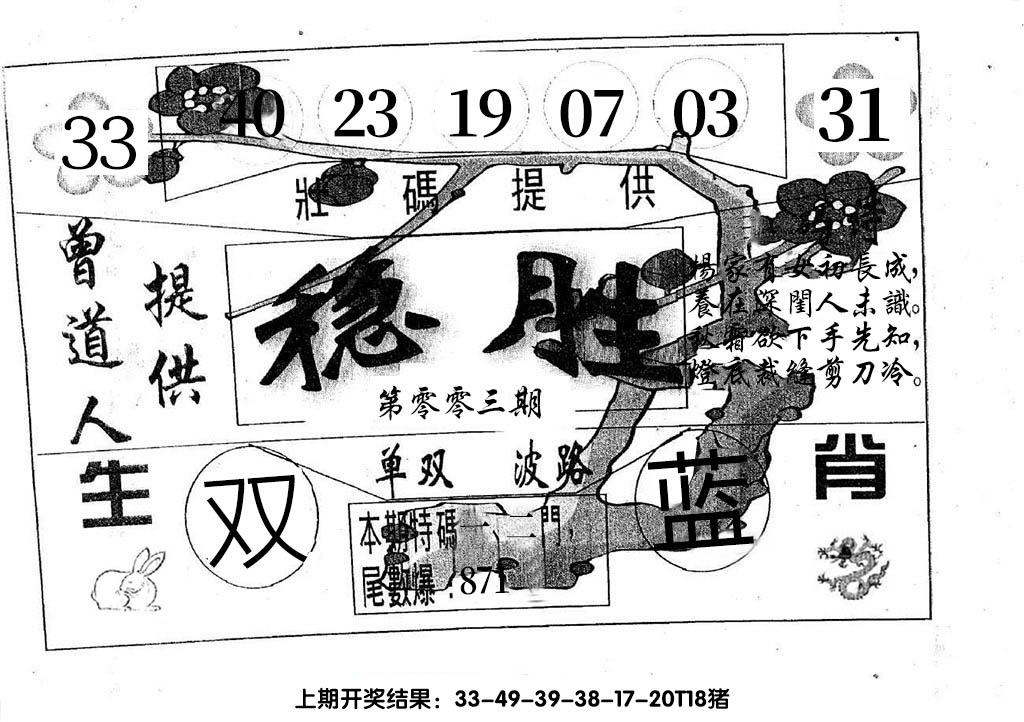 33 40 23 19 07 03 31
壯碼提供
特
曾道人
提供
稳胜
第零零三期
楊家有女初長成，
養在深閨人未識。
秋霜欲下手先知，
燈底裁縫剪刀冷。
单双 波路
生 双
蓝 肖
本期特碼一、二門，
尾數爆：871
上期开奖结果：33-49-39-38-17-20T18猪